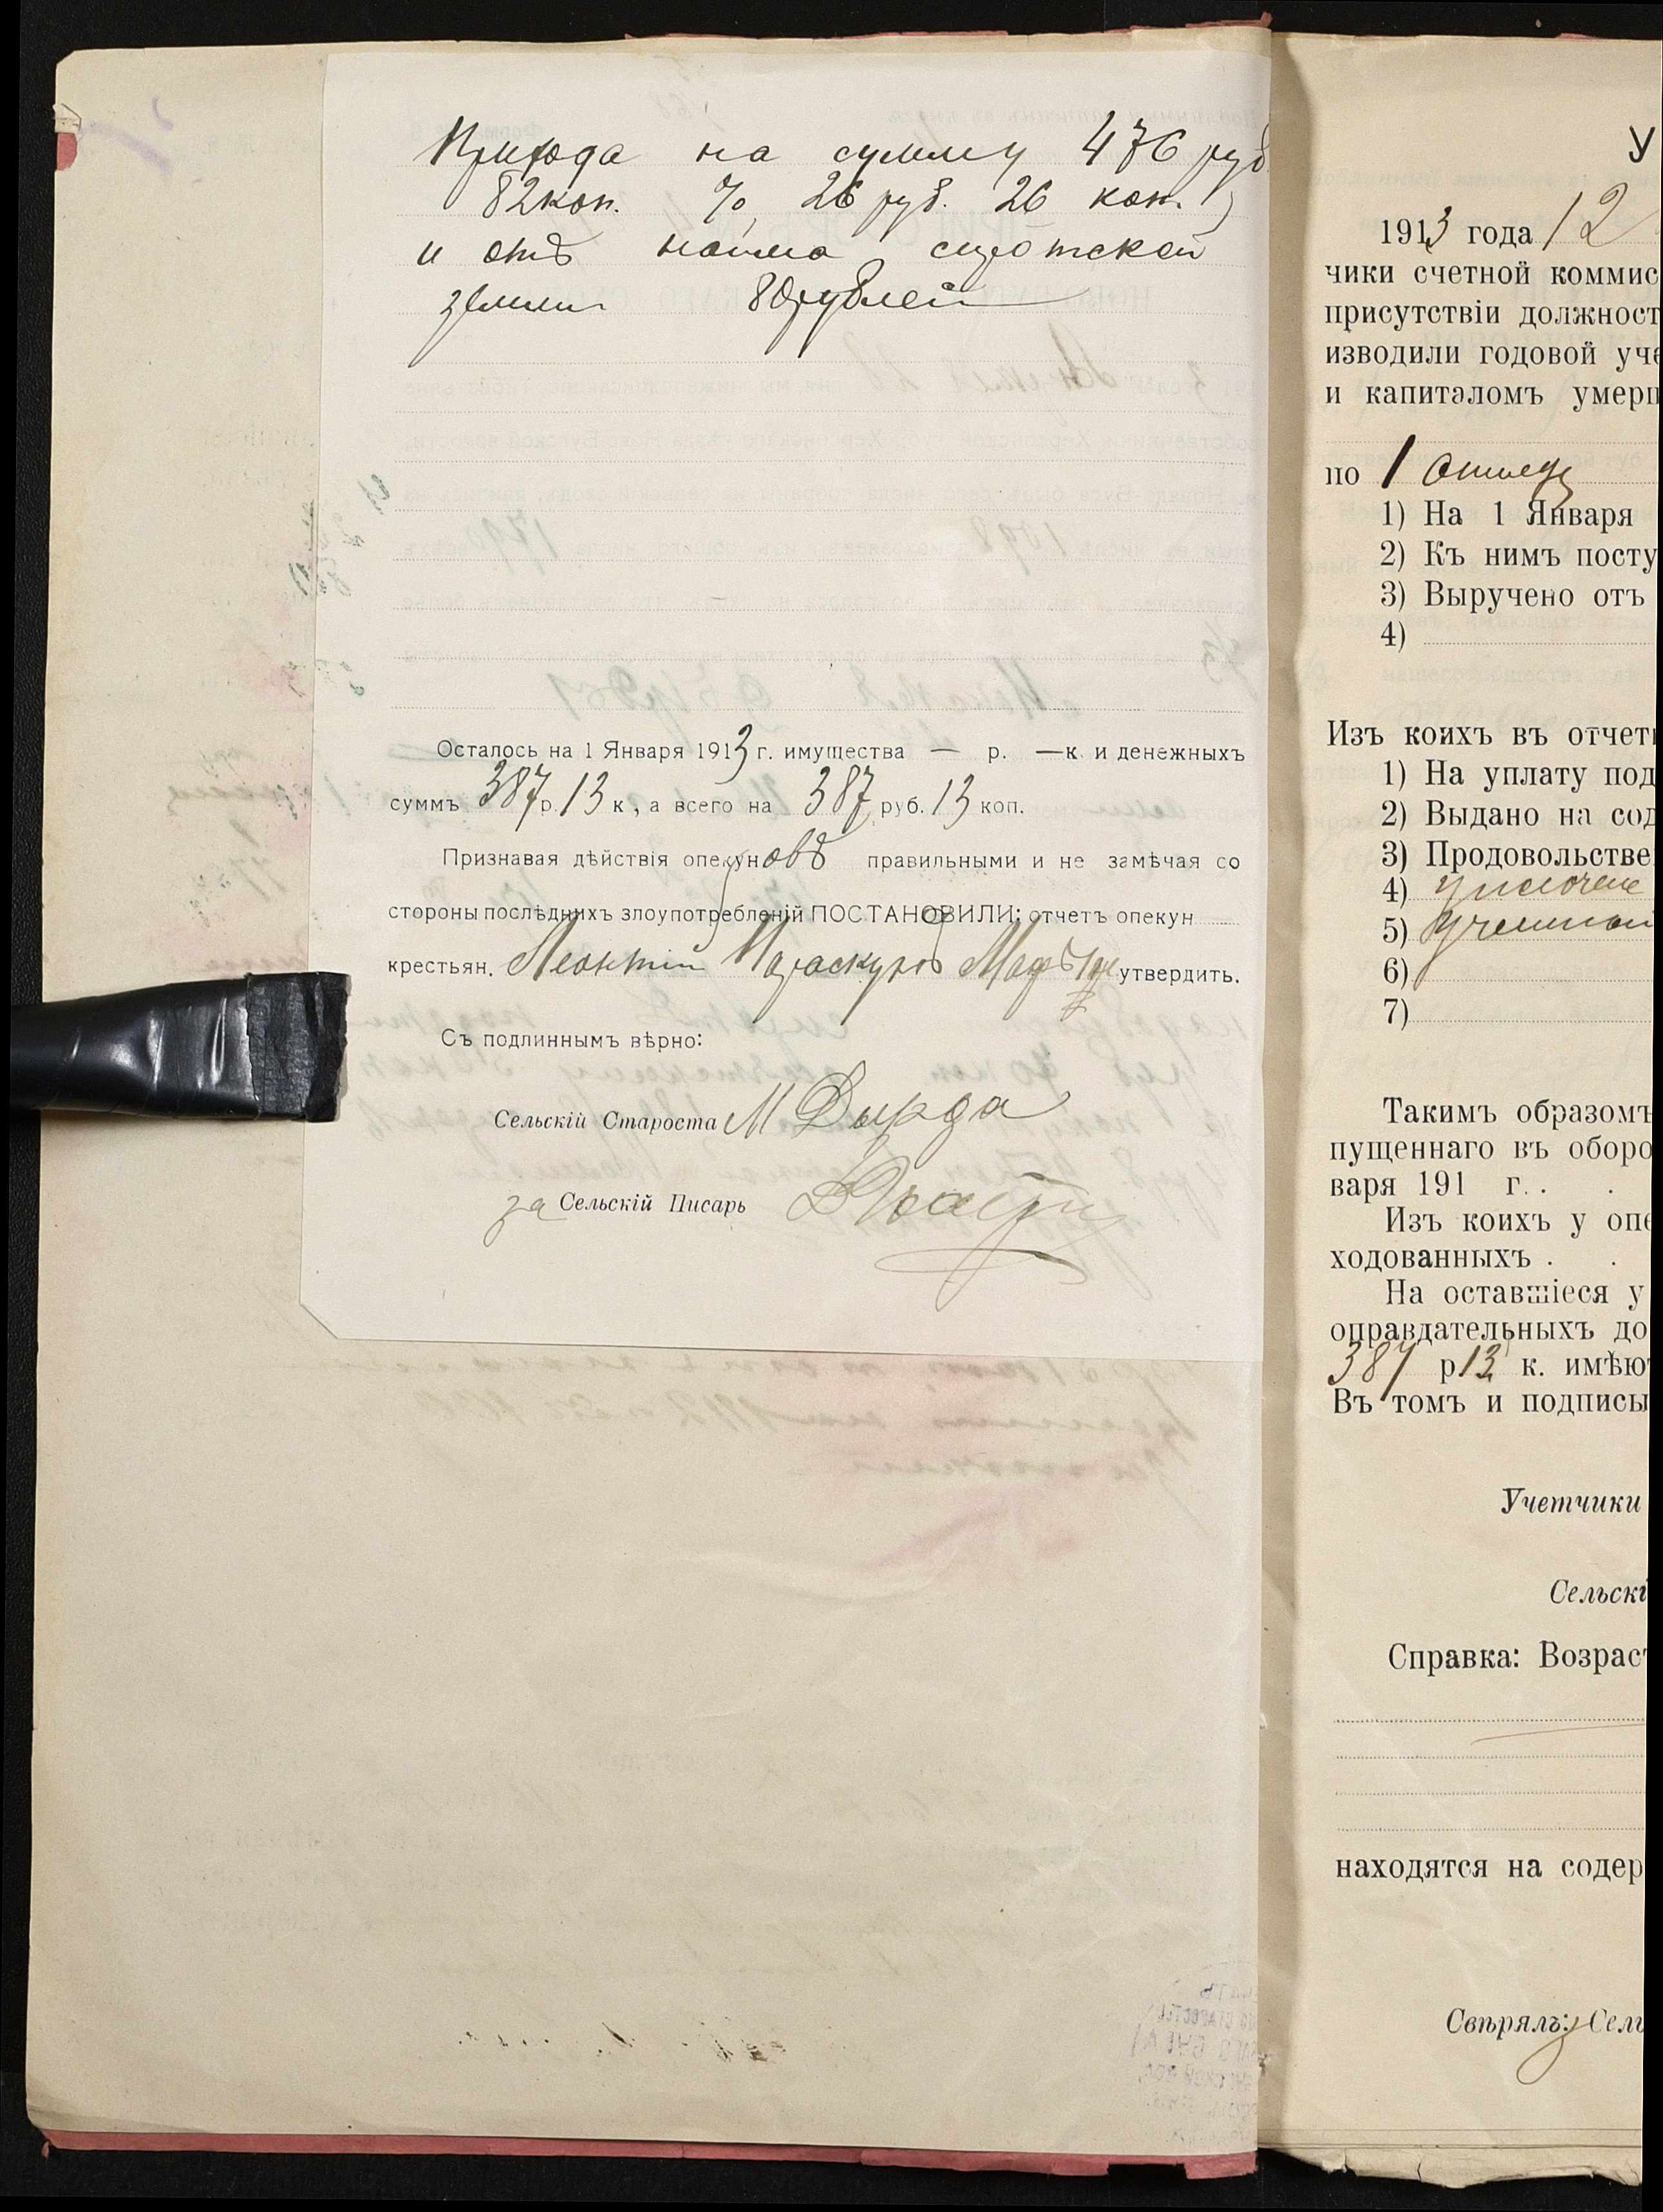 Прихода на сумму 476 руб.
82 коп. % 26 руб. 26 коп.
и отъ найма сиротской
земли 80 рублей
Осталось на 1 Января 1913 г. имущества — р. — к. и денежныхъ
суммъ 387 р. 13 к., а всего на 387 руб. 13 коп.
Признавая дѣйствія опекуновъ правильными и не замѣчая со
стороны послѣднихъ злоупотребленій ПОСТАНОВИЛИ: отчетъ опекун
крестьян. Леонтій Параскуровъ утвердить.
Съ подлиннымъ вѣрно:
Сельскій Староста М Дырда
за Сельскій Писарь
У
1913 года 12
чики счетной коммис
присутствіи должност
изводили годовой уче
и капиталомъ умерш
по 1
1) На 1 Января
2) Къ нимъ посту
3) Выручено отъ
4)
Изъ коихъ въ отчетн
1) На уплату под
2) Выдано на сод
3) Продовольстве
4)
5)
6)
7)
Такимъ образомъ
пущеннаго въ оборо
варя 191 г. . .
Изъ коихъ у опе
ходованныхъ . .
На оставшіеся у
оправдательныхъ до
387 р 13 к. имѣю
Въ томъ и подписы
Учетчики
Сельскі
Справка: Возраст
находятся на содер
Свѣрялъ: Сель